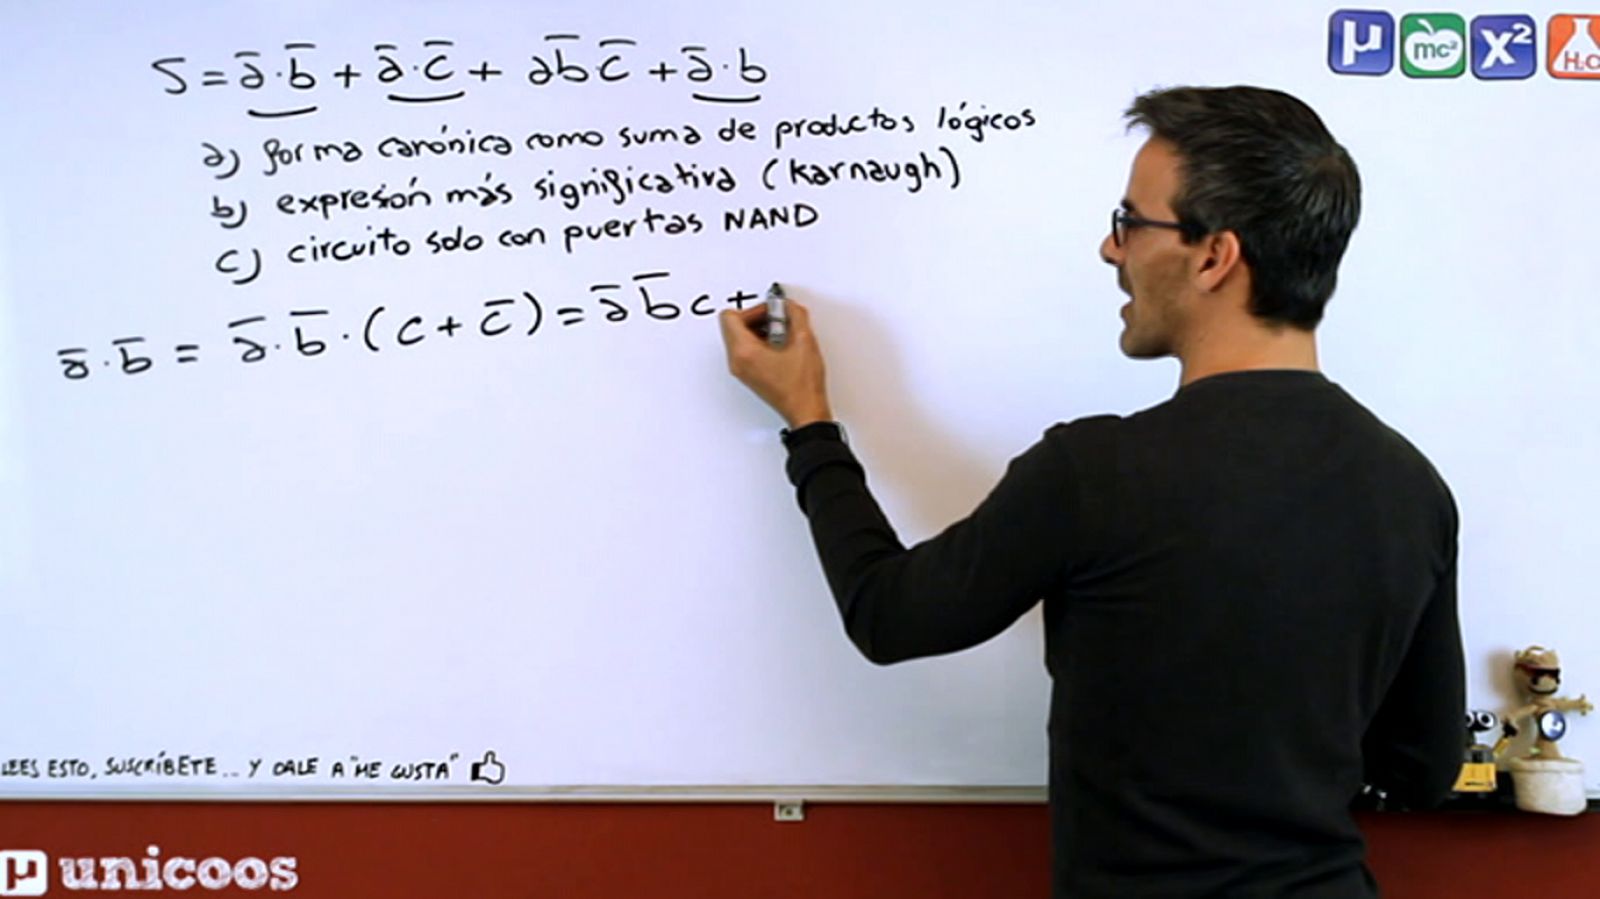 S = a̅·b̅ + a̅·c̅ + ab̅c̅ + a̅·b
a) forma canónica como suma de productos lógicos
b) expresión más significativa (Karnaugh)
c) circuito solo con puertas NAND
a̅·b̅ = a̅·b̅·(c + c̅) = a̅b̅c +
LEES ESTO, SUSCRÍBETE.. Y DALE A "ME GUSTA"
µ unicoos
µ mc² x² H₂O